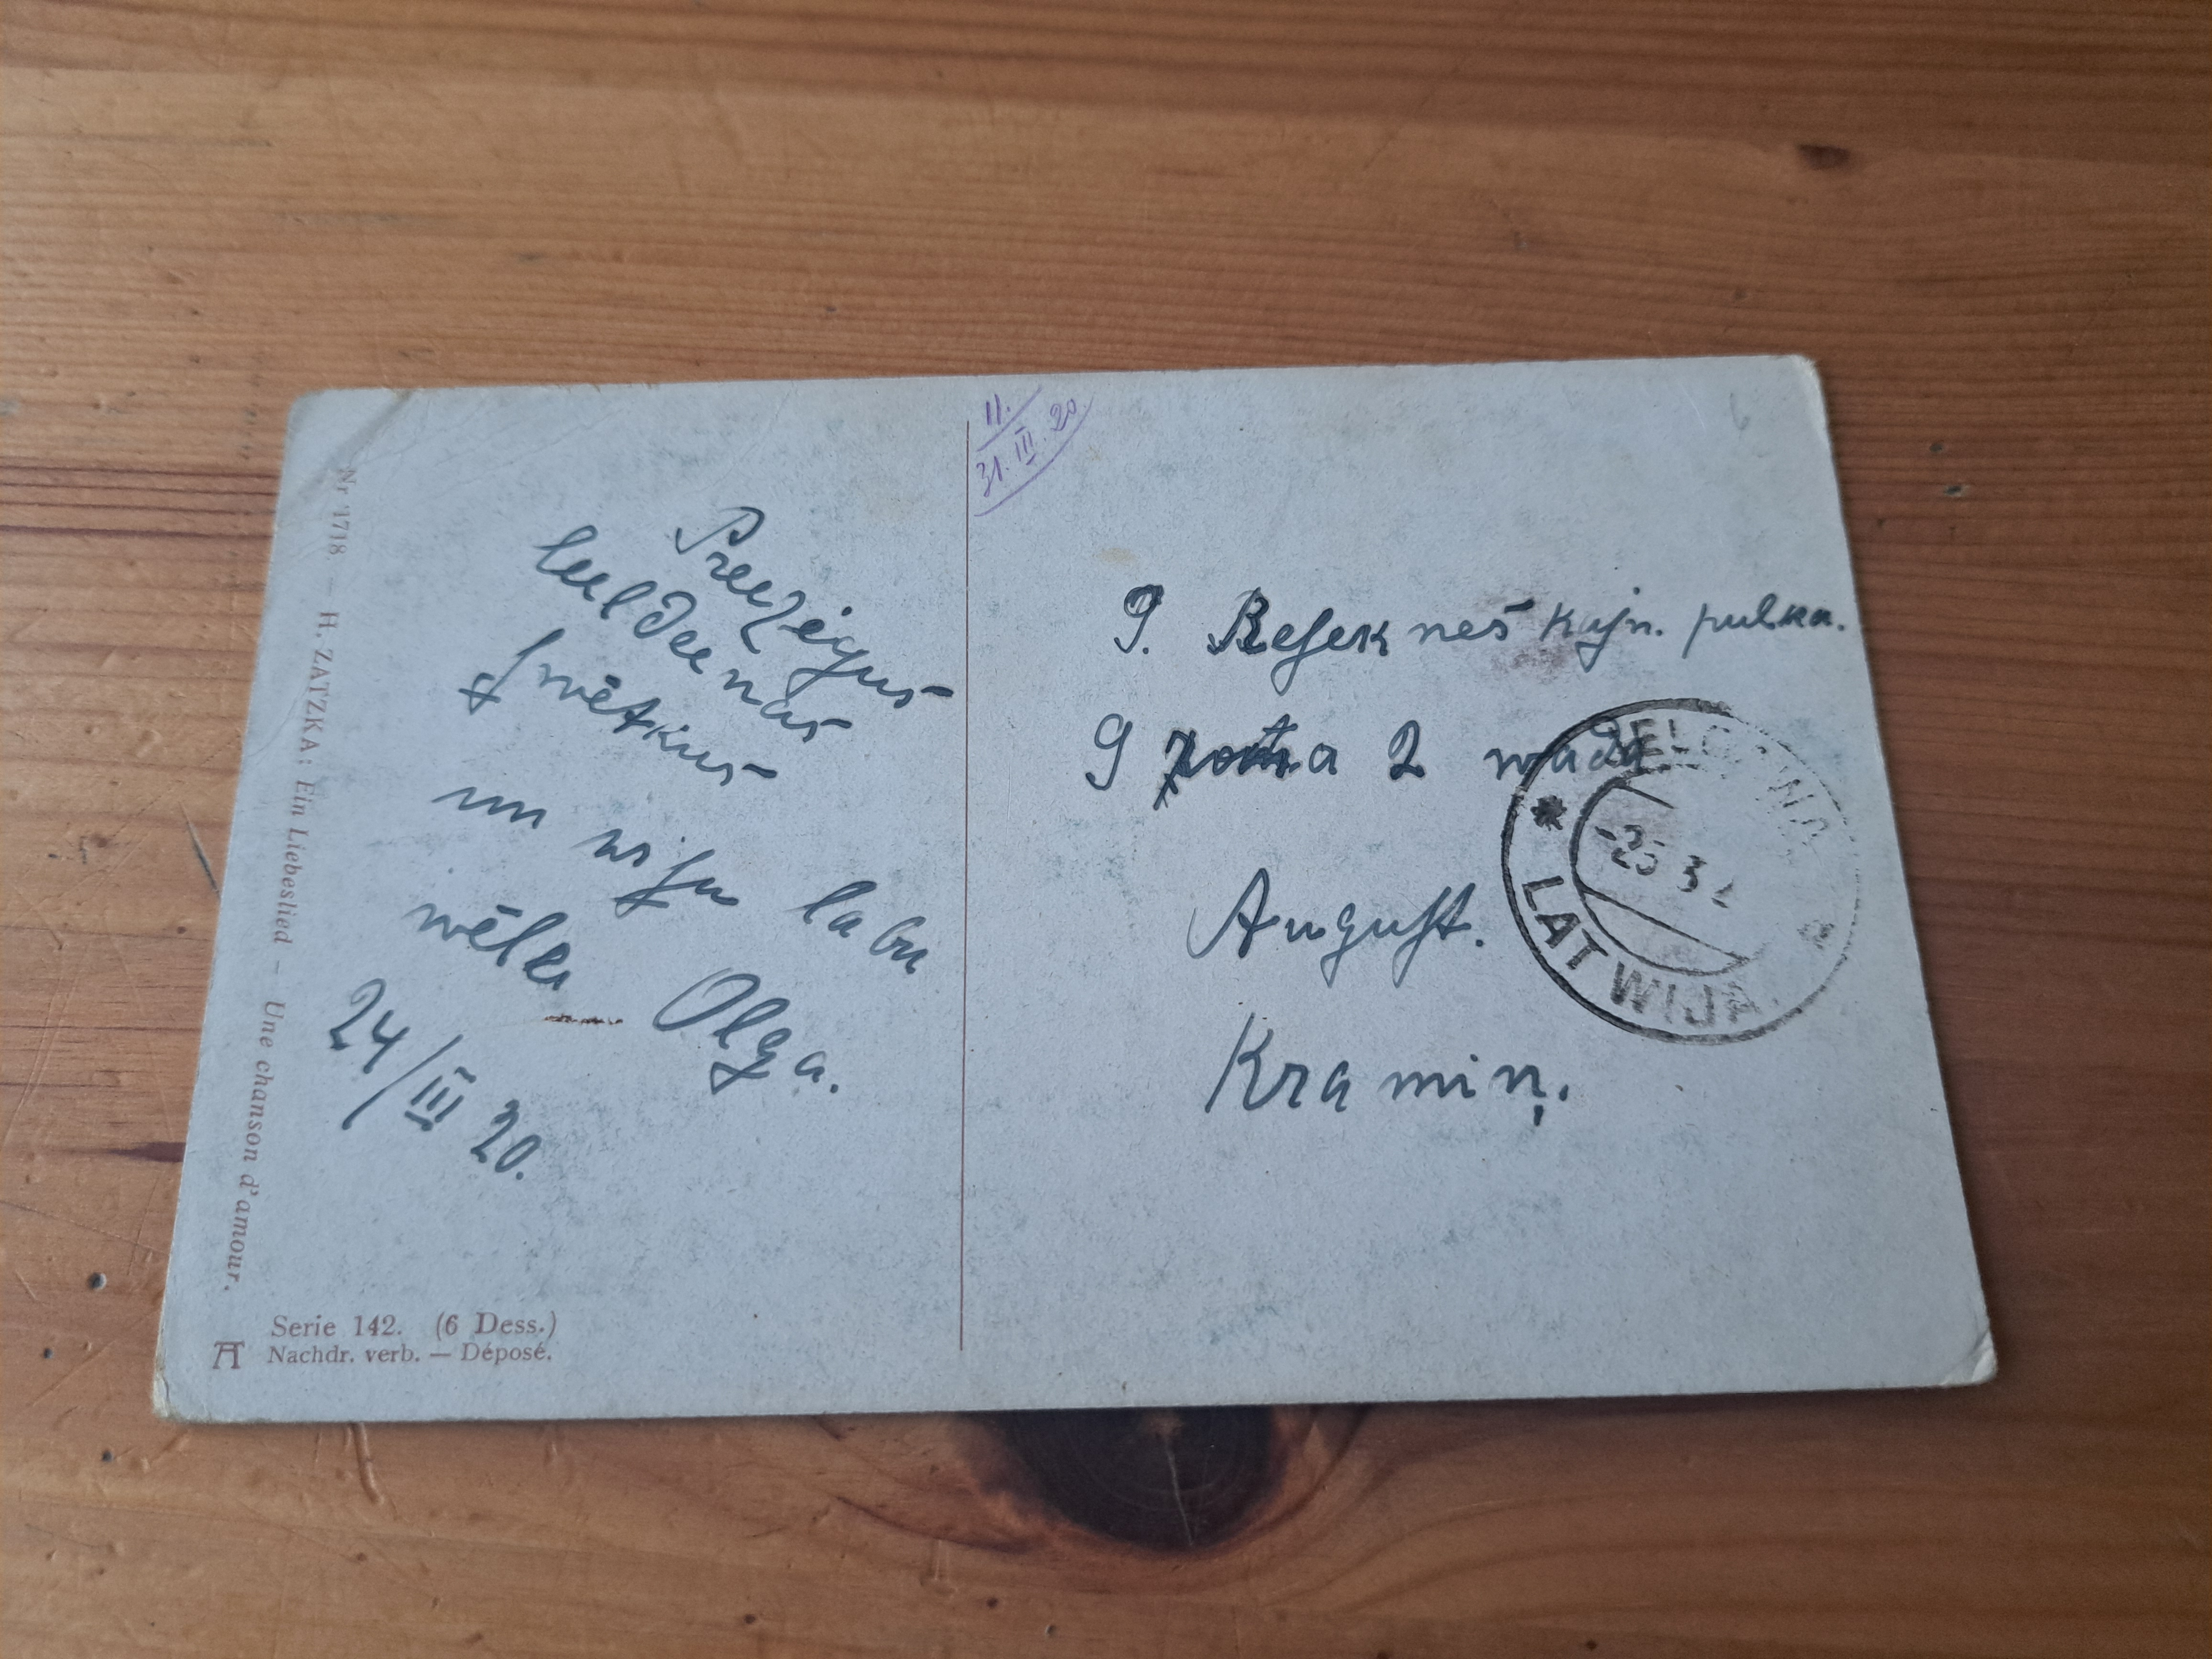 Nr 1718 — H. ZATZKA: Ein Liebeslied — Une chanson d'amour.
Preezigus
leeldeenas
swētkus
un wisu labu
wēlu Olga.
24/III 20.
Serie 142. (6 Dess.)
Nachdr. verb. — Déposé.
11.
31.III.20.
9. Resek neš kajn. pulka.
9 rota 2 wada
August.
Kramiņ.
JELGAWA
-25 3 2
a
LATWIJA